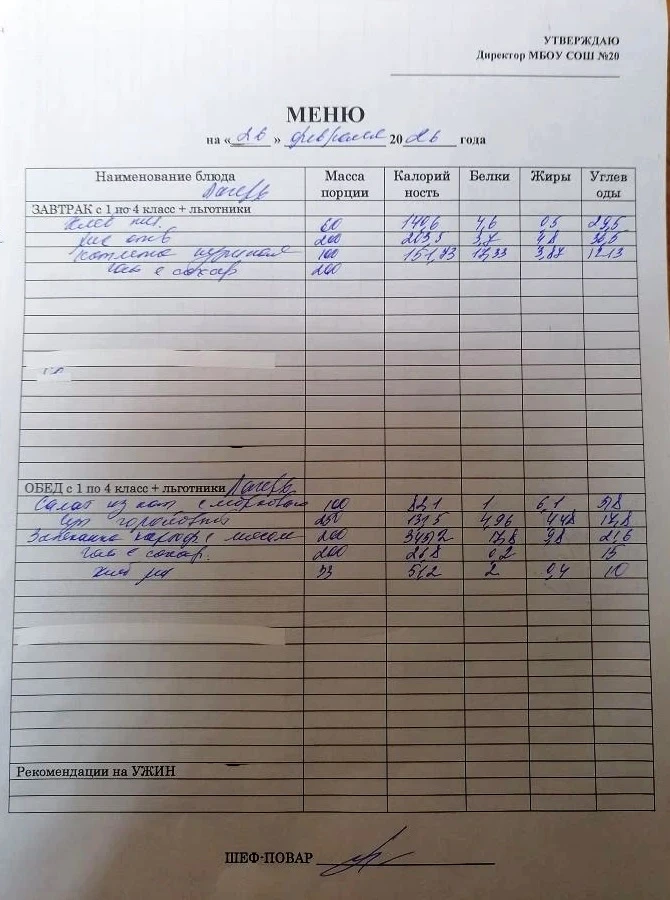 УТВЕРЖДАЮ
Директор МБОУ СОШ №20
МЕНЮ
на « 26 » февраля 2026 года
Наименование блюда Масса порции Калорий ность Белки Жиры Углев оды
Лагерь
ЗАВТРАК с 1 по 4 класс + льготники
Хлеб пш. 60 140,6 4,6 0,5 29,5
Рис отв 200 203,5 3,7 4,8
Котлета куриная 100 151,73 3,87 12.13
Чай с сахар 200
ОБЕД с 1 по 4 класс + льготники Лагерь
Салат из кап с морковью 100 82,1 1 6,1 5,8
Суп гороховый 250 131,5 4,96 4,48 17,8
Запеканка картоф с мясом 200 17,8 9,8 21,6
Чай с сахар. 200 26,8 0,2 15
Хлеб рж 33 51,2 2 0,4 10
Рекомендации на УЖИН
ШЕФ-ПОВАР